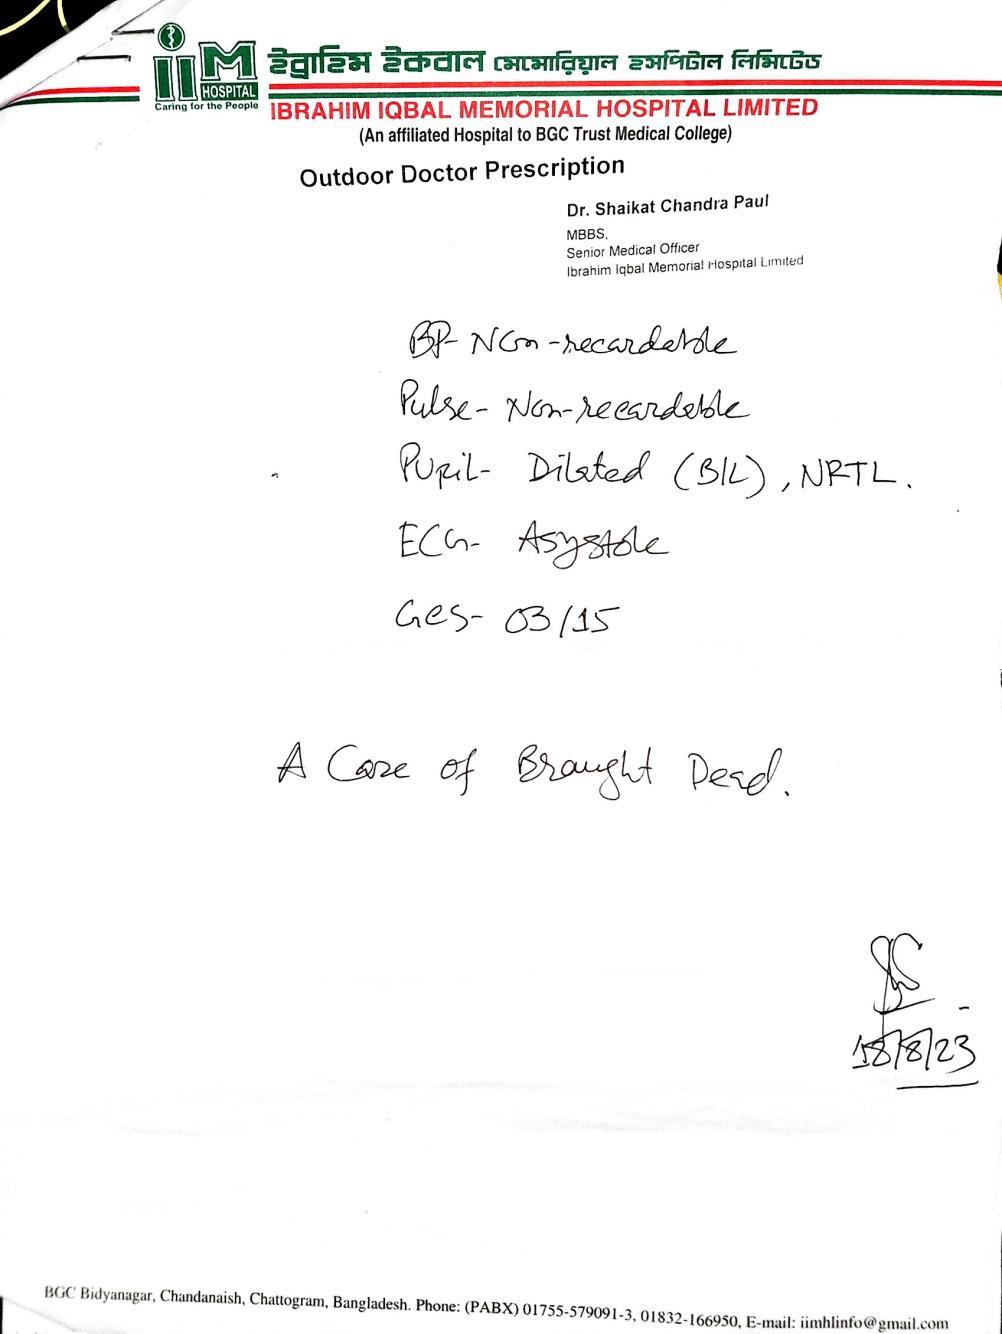 iiM
HOSPITAL
Caring for the People
ইব্রাহিম ইকবাল মেমোরিয়াল হসপিটাল লিমিটেড
IBRAHIM IQBAL MEMORIAL HOSPITAL LIMITED
(An affiliated Hospital to BGC Trust Medical College)
Outdoor Doctor Prescription
Dr. Shaikat Chandra Paul
MBBS,
Senior Medical Officer
Ibrahim Iqbal Memorial Hospital Limited
BP- Non-recardeble
Pulse- Non-recardeble
Pupil- Dilated (B/L), NRTL.
ECG- Asystole
GCS- 03/15
A Case of Braught Dead.
18/8/23
BGC Bidyanagar, Chandanaish, Chattogram, Bangladesh. Phone: (PABX) 01755-579091-3, 01832-166950, E-mail: iimhlinfo@gmail.com